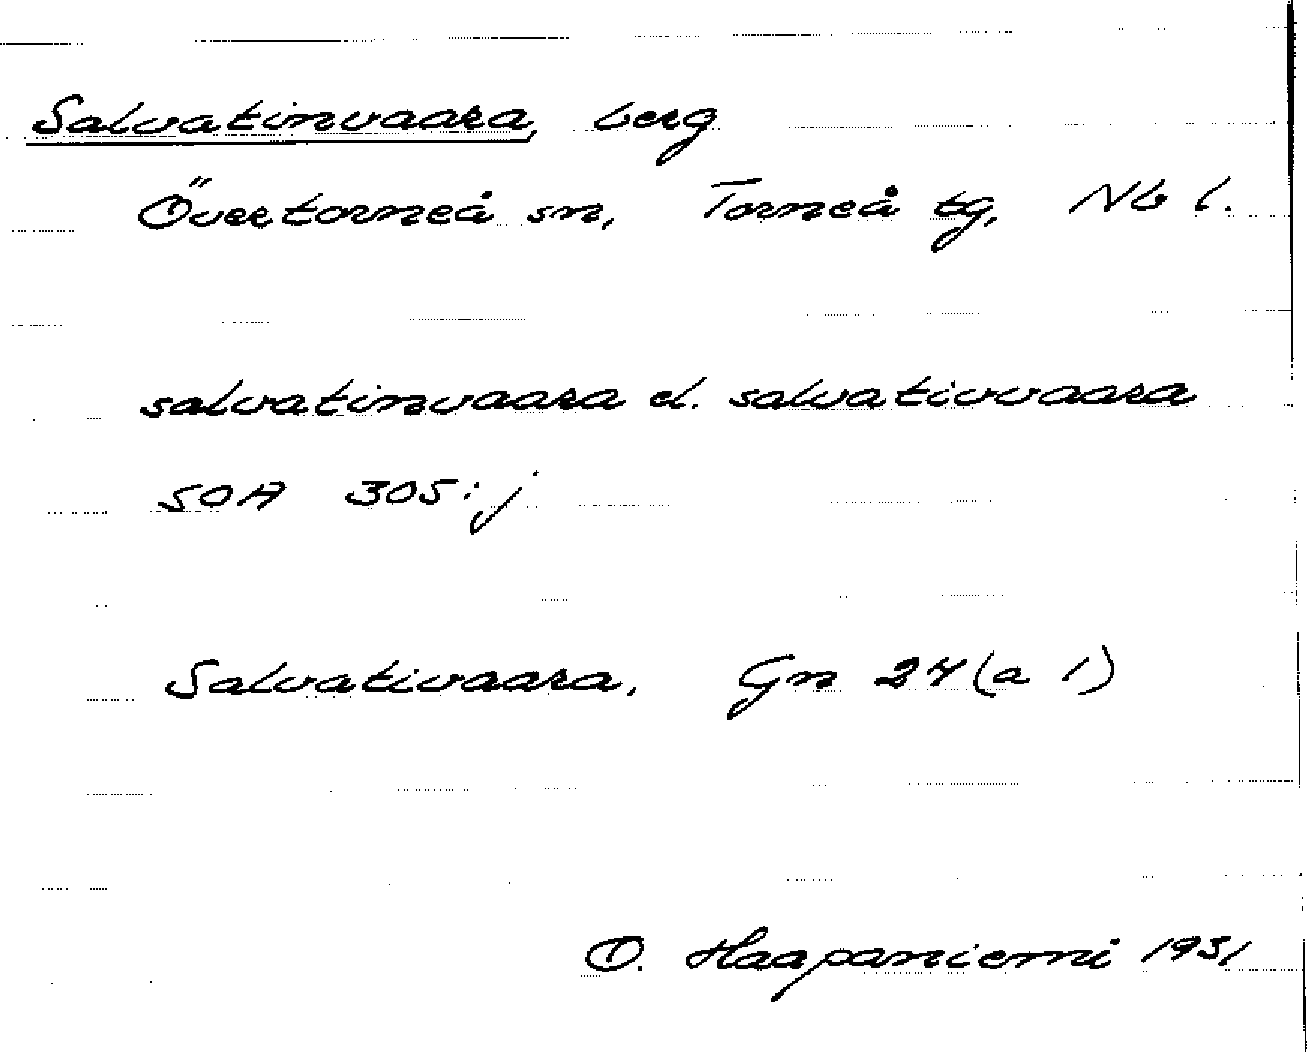 Salvatinvaara, berg
Övertorneå sn, Torneå tg, Nb l.
salvatinvaara el. salvativvaara
SOA 305:j
Salvativaara, Gn 24 (a 1)
O. Haapaniemi 1931